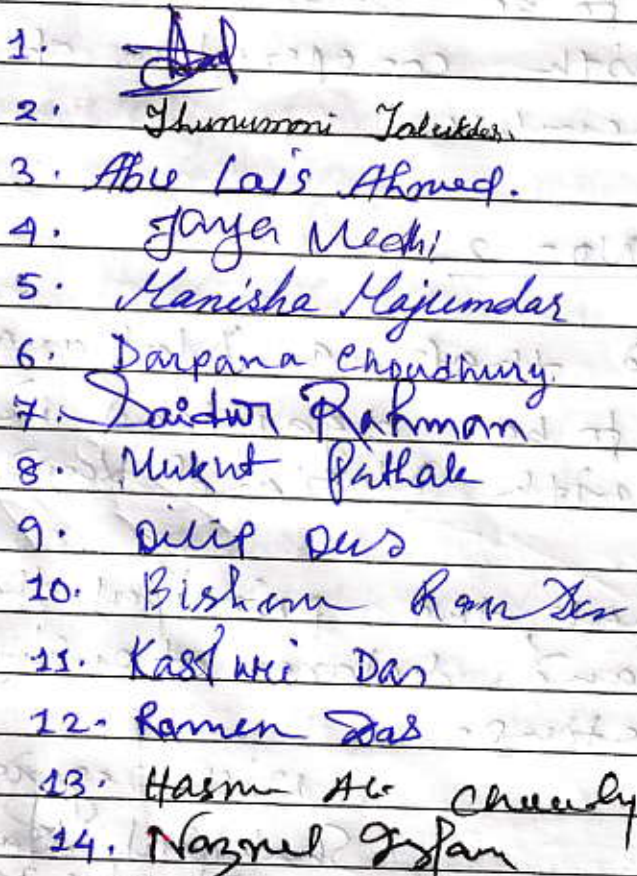 1.
2. Jhunumoni Talukdar.
3. Abu Lais Ahmed.
4. Jaya Medhi
5. Manisha Majumdar
6. Darpana Choudhury
7. Saidur Rahman
8. Mukut Pathak
9. Dilip Das
10. Bishnu Ram Das
11. Kasturi Das
12. Ramen Das
13. Ali
14. Islam